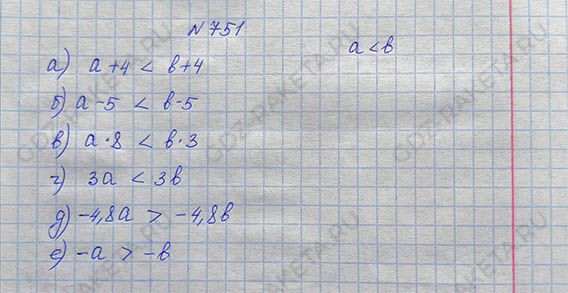 N 751
a < b
а) a + 4 < b + 4
б) a - 5 < b - 5
в) a · 8 < b · 3
г) 3a < 3b
д) -4,8a > -4,8b
е) -a > -b
GDZ-RAKETA.RU
GDZ-RAKETA.RU
GDZ-RAKETA.RU
GDZ-RAKETA.RU
GDZ-RAKETA.RU
GDZ-RAKETA.RU